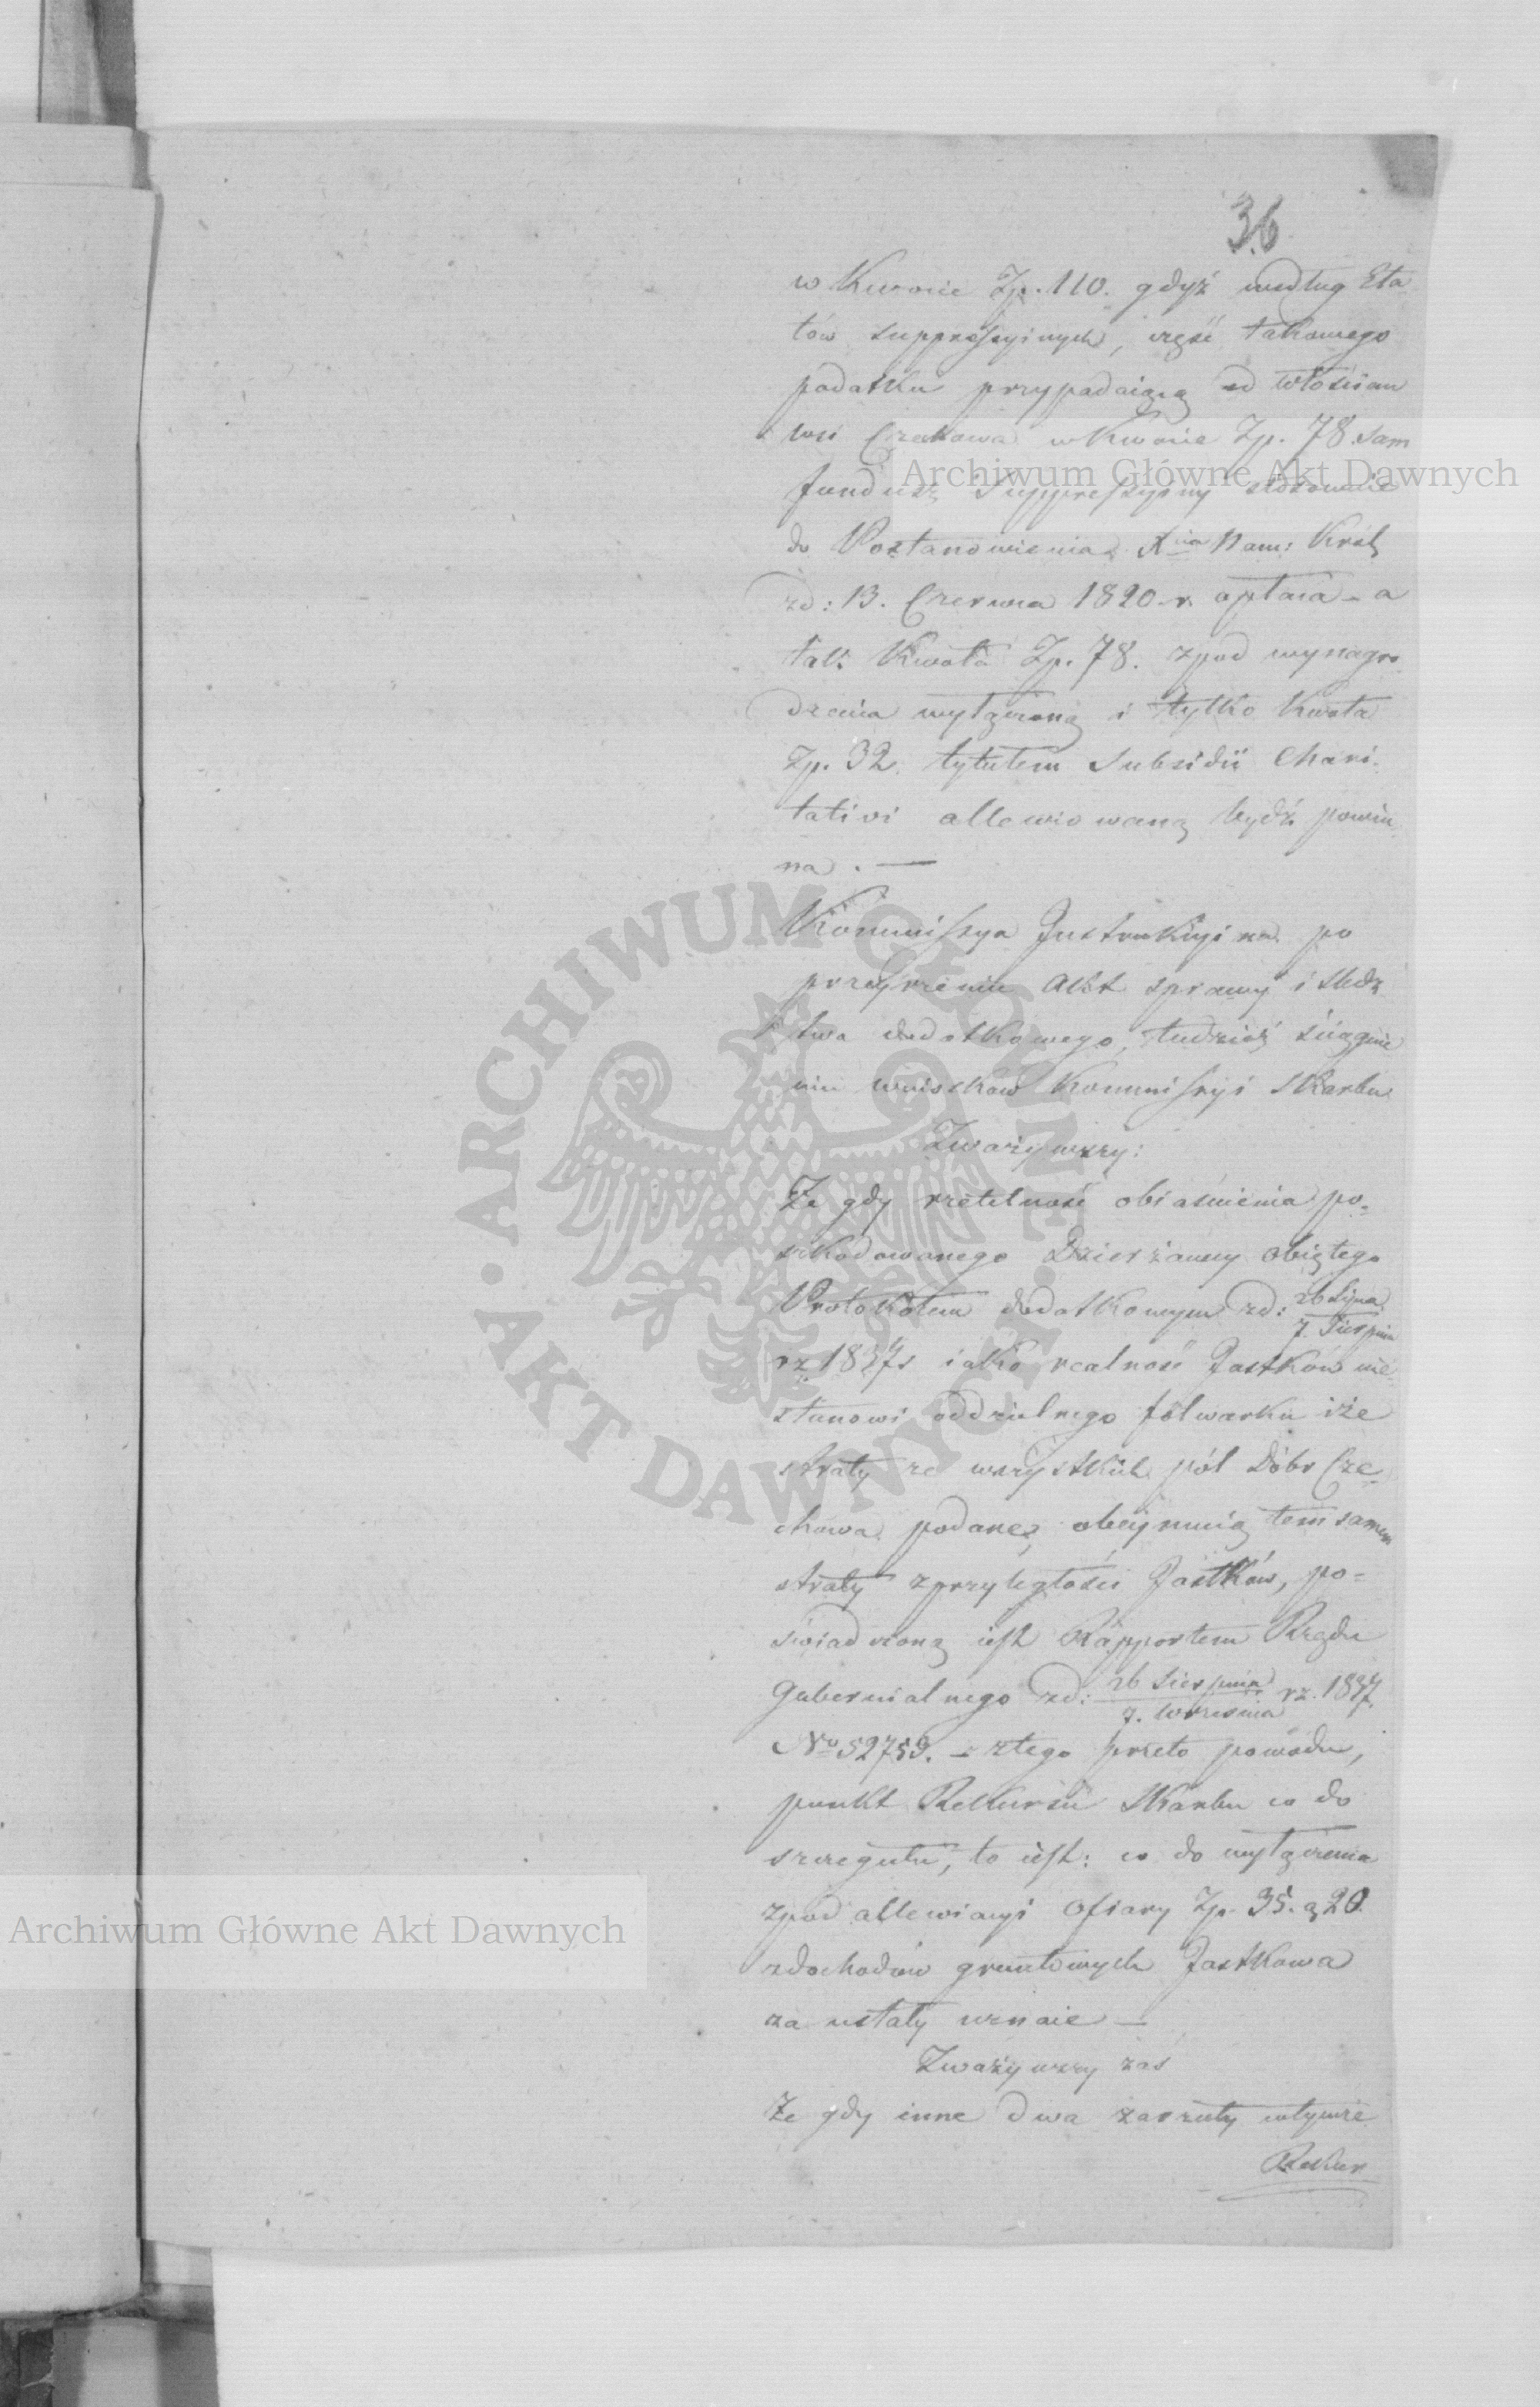 36
w Kwocie Zp. 110. gdyż według Eta
tów suppressyinych, część takowego
podatku przypadaiącą od włościan
wsi Czechowa w kwocie Zp. 78. sam
fundusz Suppressyiny stosownie
do Postanowienia Xcia Nam: Król
zd: 13. Czerwca 1820 r. opłaca - a
tak Kwota Zp. 78. zpod wynagro
dzenia wyłączoną i tylko kwota
Zp. 32. tytułem Subsidii Chari
tativi allewiowaną bydź powin
na. —
Kommissya Instrukcyina po
przeyrzeniu Akt sprawy i śledz
twa dodatkowego, tudzież ściągnie
niu wniosków Kommissyi Skarbu
Zważywszy:
Że gdy rzetelność obiaśnienia po-
szkodowanego Dzierżawcy obiętego
Protokółem dodatkowym zd: 26 Lipca
7. Sierpnia
rz 1837 r iako realność Jastków nie
stanowi oddzielnego folwarku iże
straty ze wszystkich pól Dóbr Cze-
chowa podane, obeymuią tem samem
straty z przyległości Jastków, po-
świadczoną iest Rapportem Rządu
Gubernialnego zd: 26 Sierpnia
7. Września rz. 1837.
No 52759. - ztego przeto powodu,
punkt Rekursu Skarbu co do
szczegułu, to iest: co do wyłączenia
zpod allewiacyi Ofiary Zp. 35. g 20.
z dochodów gruntowych Jastkowa
za ustały uznaie —
Zważywszy zaś
Że gdy inne dwa zarzuty w tymże
Rekur
Archiwum Główne Akt Dawnych
Archiwum Główne Akt Dawnych
ARCHIWUM GŁÓWNE · AKT DAWNYCH ·